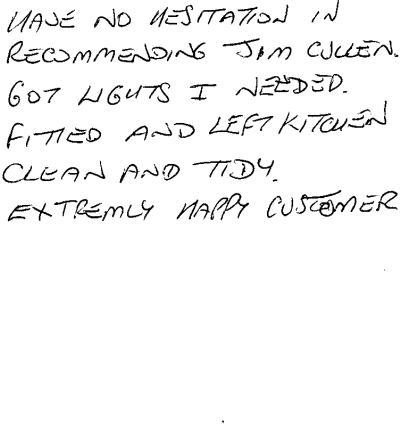 HAVE NO HESITATION IN
RECOMMENDING JIM CULLEN.
GOT LIGHTS I NEEDED.
FITTED AND LEFT KITCHEN
CLEAN AND TIDY.
EXTREMLY HAPPY CUSTOMER